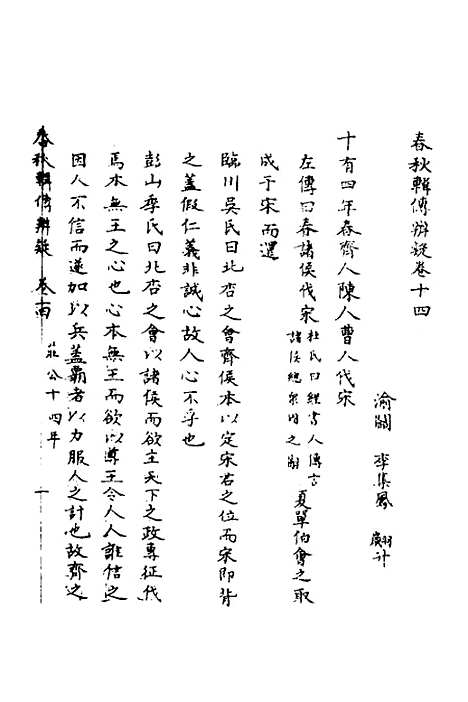 春秋輯傳辨疑卷十四
渝關 李集鳳 翽升
十有四年春齊人陳人曹人伐宋
左傳曰春諸侯伐宋杜氏曰經書人傳言諸侯總衆國之辭夏單伯會之取
成于宋而還
臨川吳氏曰北杏之會齊侯本以定宋君之位而宋即背
之蓋假仁義非誠心故人心不孚也
彭山季氏曰北杏之會以諸侯而欲主天下之政專征伐
焉本無王之心也心本無王而欲以尊王令人人誰信之
因人不信而遂加以兵蓋霸者以力服人之計也故齊之
春秋輯傳辨疑 卷十四 莊公十四年 一